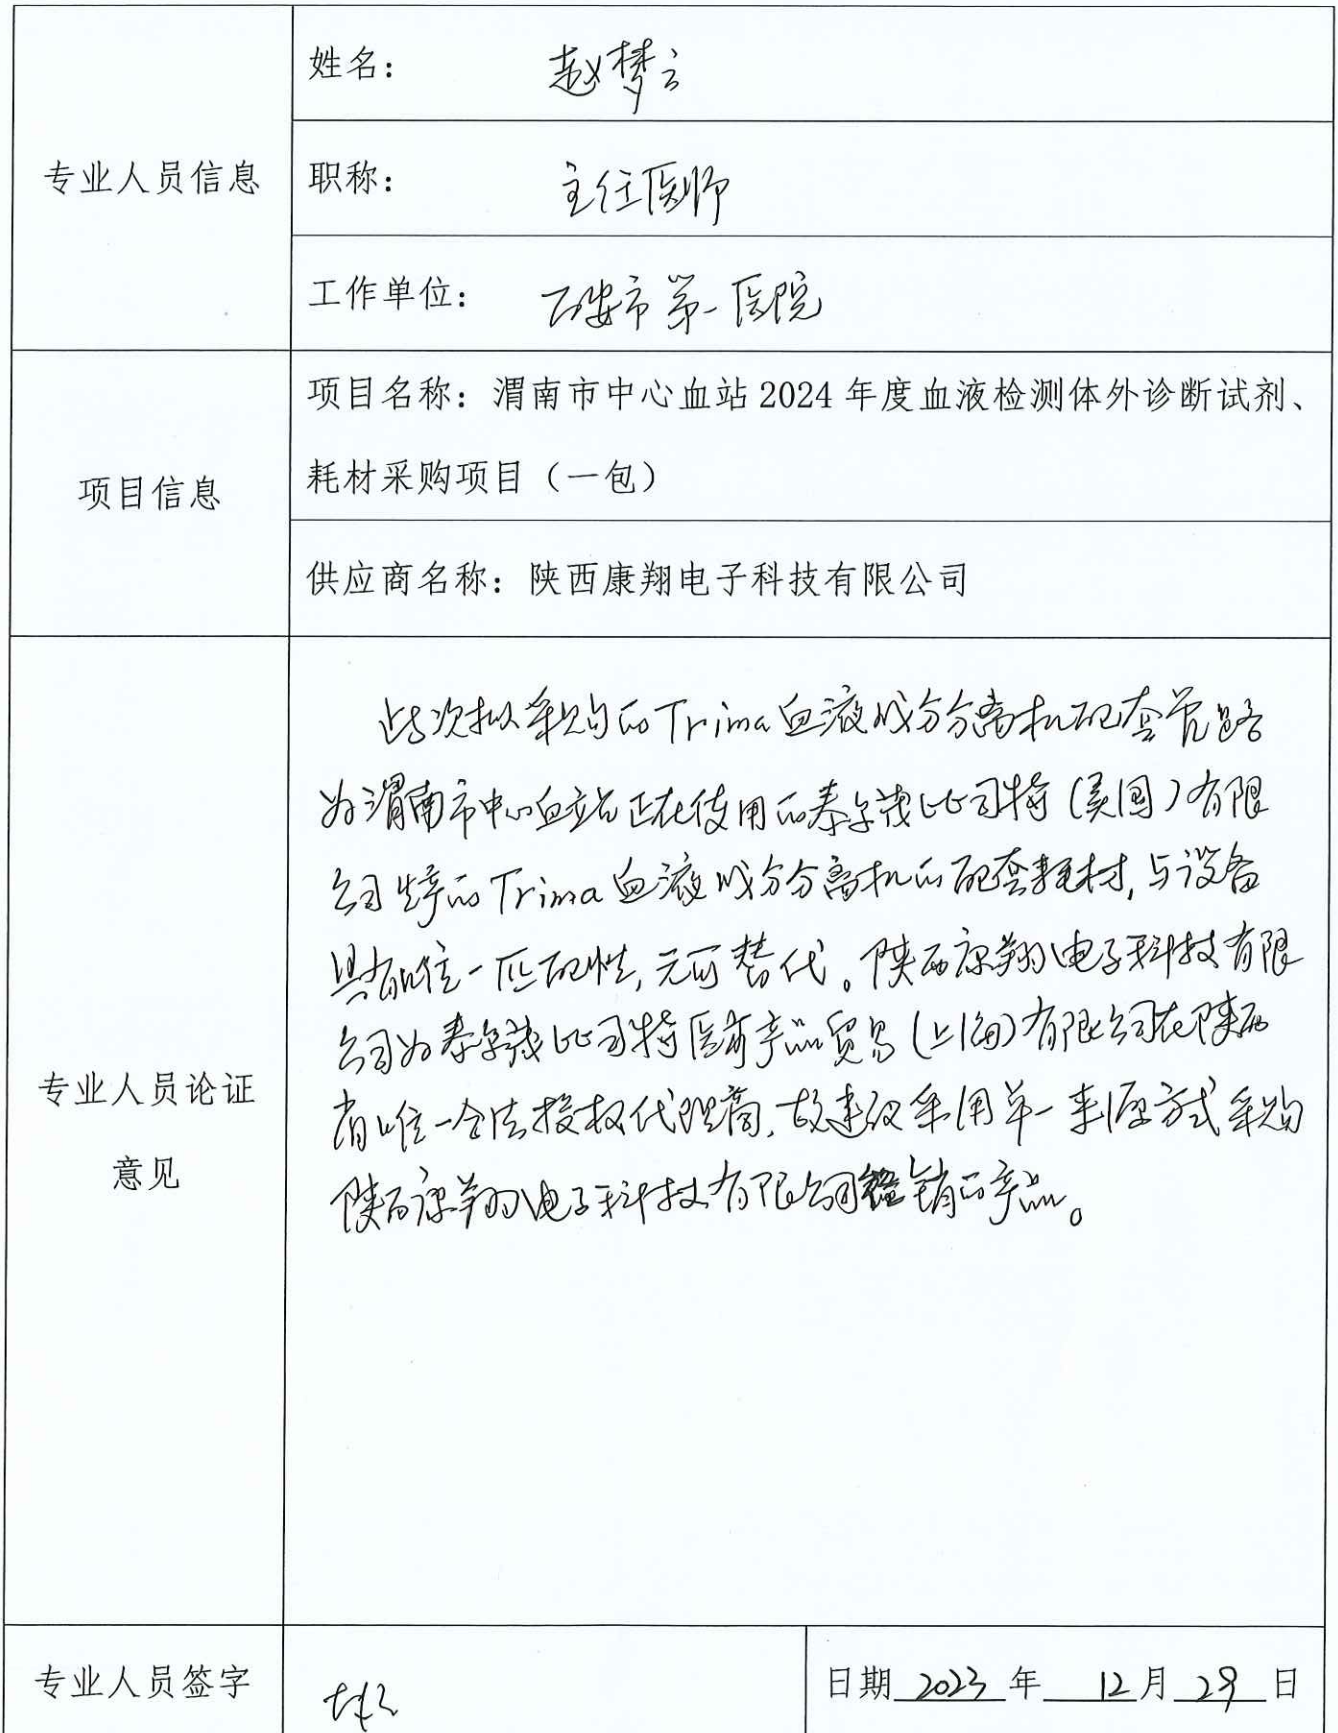 姓名： 赵梦云
专业人员信息
职称： 主任医师
工作单位： 西安市第一医院
项目名称：渭南市中心血站2024年度血液检测体外诊断试剂、
耗材采购项目（一包）
项目信息
供应商名称：陕西康翔电子科技有限公司
此次拟采购的Trima血液成分分离机配套管路
为渭南市中心血站正在使用的泰尔茂比司特（美国）有限
公司生产的Trima血液成分分离机的配套耗材，与设备
具有唯一匹配性，无可替代。陕西康翔电子科技有限
公司为泰尔茂比司特医疗产品贸易（上海）有限公司在陕西
省唯一合法授权代理商，故建议采用单一来源方式采购
陕西康翔电子科技有限公司经销的产品。
专业人员论证
意见
专业人员签字
日期 2023 年 12 月 29 日